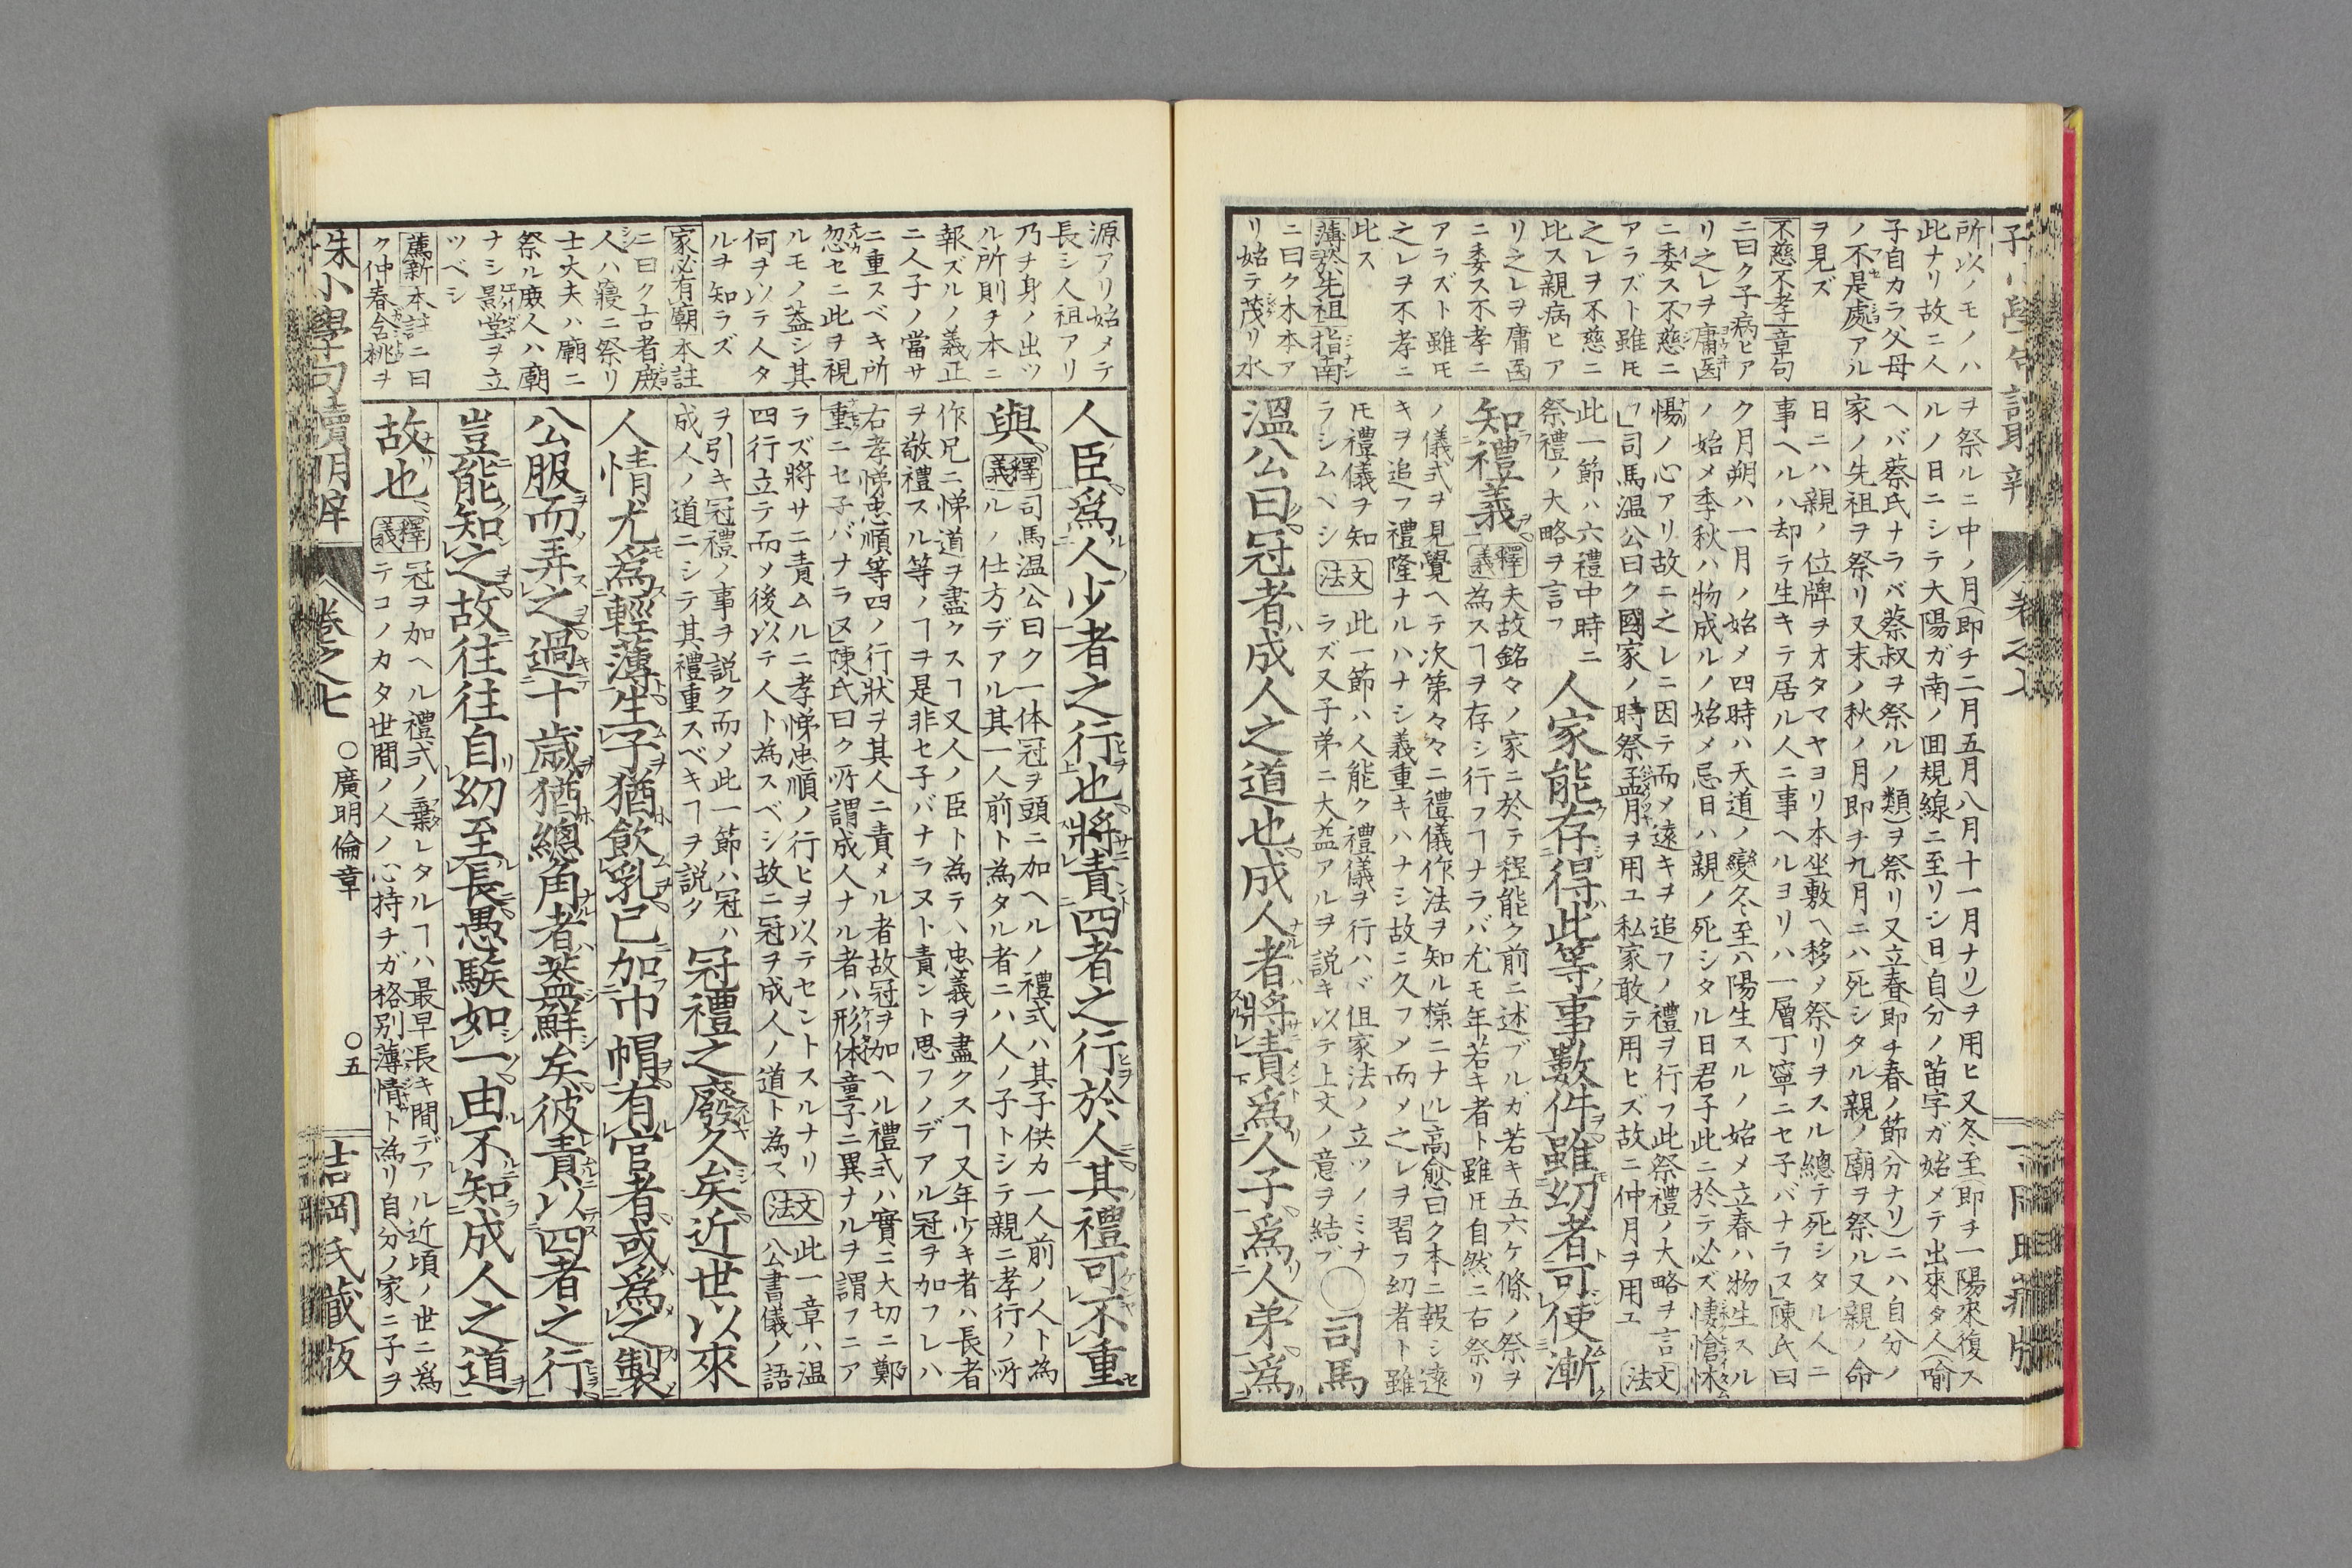 所以ノモノハ
此ナリ故ニ人
子自カラ父母
ノ不是處アル
ヲ見ズ
不慈不孝章句
ニ曰ク子病ヒア
リ之レヲ庸医
ニ委ス不慈ニ
アラズト雖𪜈
之レヲ不慈ニ
比ス親病ヒア
リ之レヲ庸医
ニ委ス不孝ニ
アラズト雖𪜈
之レヲ不孝ニ
比ス
薄於先祖指南
ニ曰ク木本ア
リ始テ茂リ水
ヲ祭ルニ中ノ月(即チ二月五月八月十一月ナリ)ヲ用ヒ又冬至(即チ一陽來復ス
ルノ日ニシテ大陽ガ南ノ回規線ニ至リシ日)自分ノ苗字ガ始メテ出來タ人(喻
ヘバ蔡氏ナラバ蔡叔ヲ祭ルノ類)ヲ祭リ又立春(即チ春ノ節分ナリ)ニハ自分ノ
家ノ先祖ヲ祭リ又末ノ秋ノ月即チ九月ニハ死シタル親ノ廟ヲ祭ル又親ノ命
日ニハ親ノ位牌ヲオタマヤヨリ本坐敷ヘ移メ祭リヲスル總テ死シタル人ニ
事ヘルハ却テ生キテ居ル人ニ事ヘルヨリハ一層丁寧ニセ子バナラヌ」陳氏曰
ク月朔ハ一月ノ始メ四時ハ天道ノ變冬至ハ陽生スルノ始メ立春ハ物生スル
ノ始メ季秋ハ物成ルノ始メ忌日ハ親ノ死シタル日君子此ニ於テ必ズ悽愴怵
惕ノ心アリ故ニ之レニ因テ而メ遠キヲ追フノ禮ヲ行フ此祭禮ノ大略ヲ言
フ」司馬温公曰ク國家ノ時祭孟月ヲ用ユ私家敢テ用ヒズ故ニ仲月ヲ用ユ 文法
此一節ハ六禮中時ニ
祭禮ノ大略ヲ言フ
人家能存得此等事數件雖幼者可使漸
知禮義 釋義 夫故銘々ノ家ニ於テ程能ク前ニ述ブルガ若キ五六ケ條ノ祭ヲ
為スヿヲ存シ行フヿナラバ尤モ年若キ者ト雖𪜈自然ニ右祭リ
ノ儀式ヲ見覺ヘテ次第々々ニ禮儀作法ヲ知ル様ニナル」高愈曰ク本ニ報シ遠
キヲ追フ禮隆ナルハナシ義重キハナシ故ニ久フメ而メ之レヲ習フ幼者ト雖
𪜈禮儀ヲ知
ラシムベシ 文法 此一節ハ人能ク禮儀ヲ行ハバ但家法ノ立ツノミナ
ラズ又子弟ニ大益アルヲ説キ以テ上文ノ意ヲ結ブ ○司馬
溫公曰冠者成人之道也成人者將責爲人子爲人弟爲
源アリ始メテ
長シ人祖アリ
乃チ身ノ出ツ
ル所則ヲ本ニ
報ズルノ義正
ニ人子ノ當サ
ニ重スベキ所
忽セニ此ヲ視
ルモノ蓋シ其
何ヲ以テ人タ
ルヲ知ラズ
家必有廟本註
ニ曰ク古者庶
人ハ寢ニ祭リ
士大夫ハ廟ニ
祭ル庶人ハ廟
ナシ影堂ヲ立
ツベシ
薦新本註ニ曰
ク仲春含桃ヲ
人臣爲人少者之行也將責四者之行於人其禮可不重
與 釋義 司馬温公曰ク一体冠ヲ頭ニ加ヘルノ禮式ハ其子供カ一人前ノ人ト為
ルノ仕方デアル其一人前ト為タル者ニハ人ノ子トシテ親ニ孝行ノ所
作兄ニ悌道ヲ盡クスヿ又人ノ臣ト為テハ忠義ヲ盡クスヿ又年少キ者ハ長者
ヲ敬禮スル等ノヿヲ是非セ子バナラヌト責ント思フノデアル冠ヲ加フレハ
右孝悌忠順等四ノ行狀ヲ其人ニ責メル者故冠ヲ加ヘル禮式ハ實ニ大切ニ鄭
重ニセ子バナラヌ」陳氏曰ク所謂成人ナル者ハ形体童子ニ異ナルヲ謂フニア
ラズ將サニ責ムルニ孝悌忠順ノ行ヒヲ以テセントスルナリ
四行立テ而メ後以テ人ト為スベシ故ニ冠ヲ成人ノ道ト為ス 文法 此一章ハ温
公書儀ノ語
ヲ引キ冠禮ノ事ヲ説ク而メ此一節ハ冠ハ
成人ノ道ニシテ其禮重スベキヿヲ説ク
冠禮之廢久矣近世以來
人情尤爲輕薄生子猶飲乳已加巾帽有官者或爲之製
公服而弄之過十歳猶總角者蓋鮮矣彼責以四者之行
豈能知之故往往自幼至長愚騃如一由不知成人之道
故也 釋義 冠ヲ加ヘル禮式ノ棄レタルヿハ最早長キ間デアル近頃ノ世ニ爲
テコノカタ世間ノ人ノ心持チガ格別薄情ト為リ自分ノ家ニ子ヲ
朱小學句讀明辨 卷之七 ○廣明倫章 ○五 吉岡氏藏版